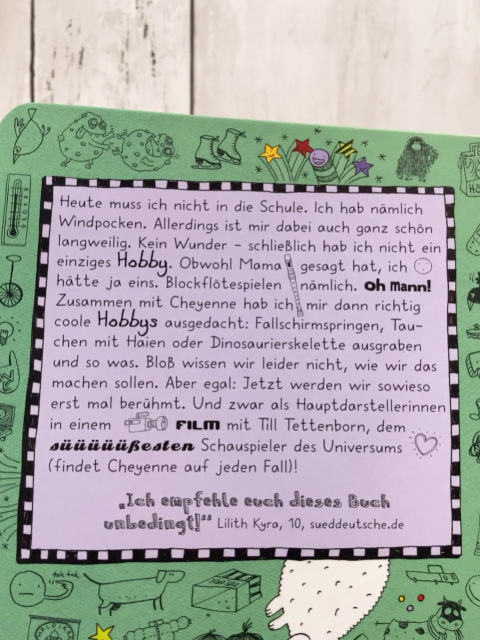 Heute muss ich nicht in die Schule. Ich hab nämlich
Windpocken. Allerdings ist mir dabei auch ganz schön
langweilig. Kein Wunder – schließlich hab ich nicht ein
einziges Hobby. Obwohl Mama gesagt hat, ich
hätte ja eins. Blockflötespielen nämlich. Oh Mann!
Zusammen mit Cheyenne hab ich mir dann richtig
coole Hobbys ausgedacht: Fallschirmspringen, Tau-
chen mit Haien oder Dinosaurierskelette ausgraben
und so was. Bloß wissen wir leider nicht, wie wir das
machen sollen. Aber egal: Jetzt werden wir sowieso
erst mal berühmt. Und zwar als Hauptdarstellerinnen
in einem FILM mit Till Tettenborn, dem
süüüüüüßesten Schauspieler des Universums
(findet Cheyenne auf jeden Fall)!
„Ich empfehle euch dieses Buch
unbedingt!“ Lilith Kyra, 10, sueddeutsche.de
tok tok